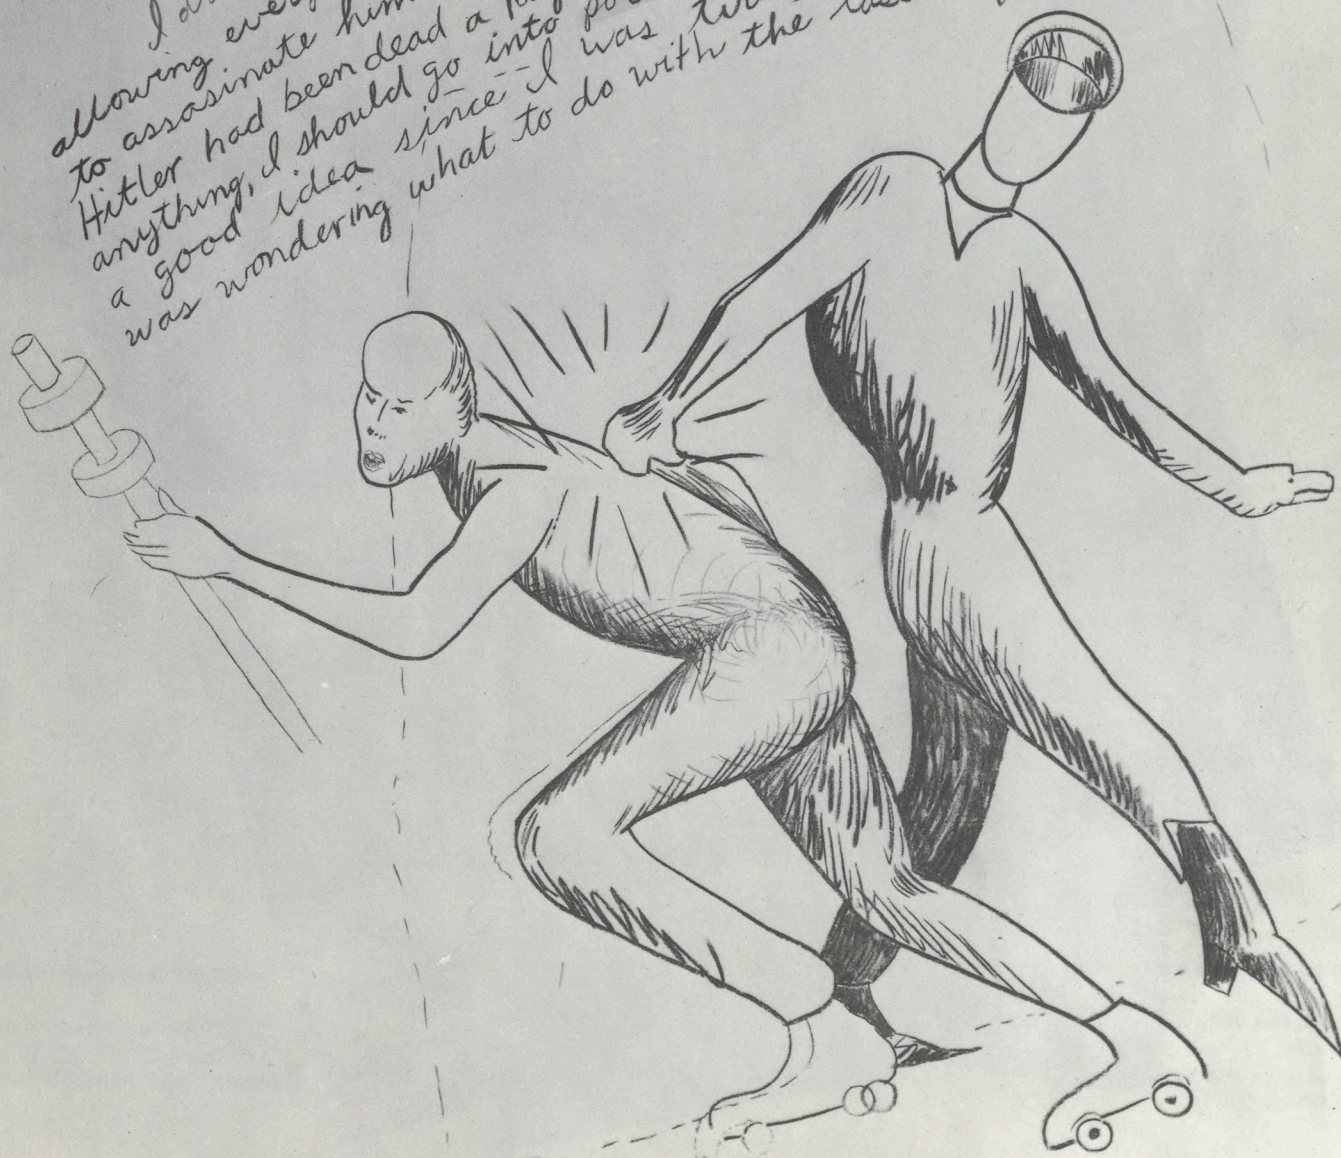 I
allowing
to assasinate him
Hitler had been dead a
anything, I should go into
a good idea since I was
was wondering what to do with the